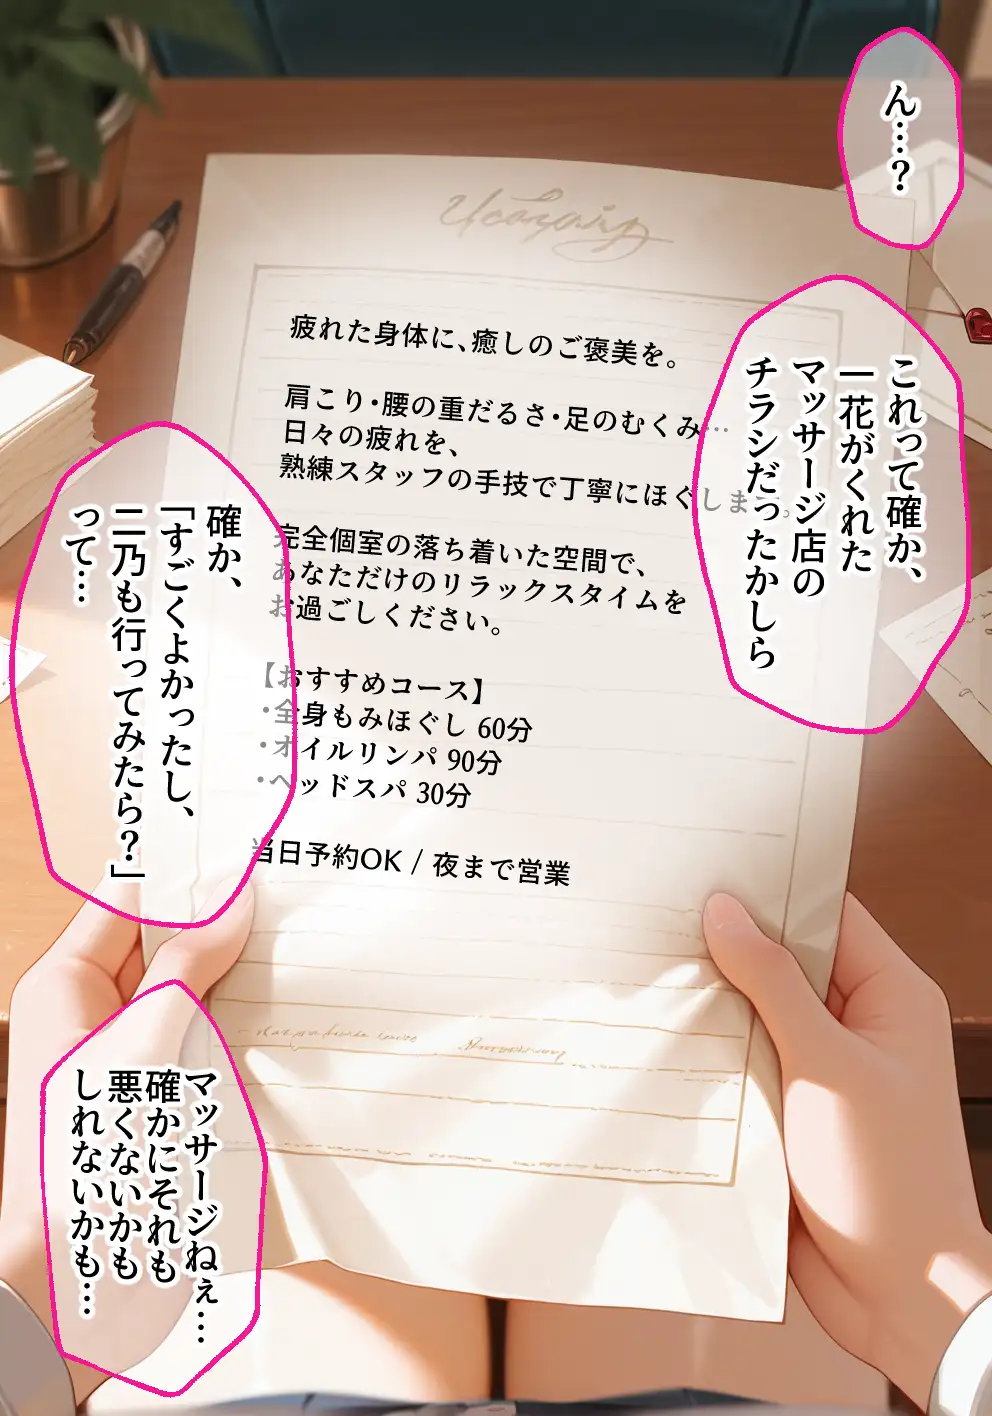 ん…?
これって確か、
一花がくれた
マッサージ店の
チラシだったかしら
疲れた身体に、癒しのご褒美を。
肩こり・腰の重だるさ・足のむくみ…
日々の疲れを、
熟練スタッフの手技で丁寧にほぐします。
完全個室の落ち着いた空間で、
あなただけのリラックスタイムを
お過ごしください。
【おすすめコース】
・全身もみほぐし 60分
・オイルリンパ 90分
・ヘッドスパ 30分
当日予約OK / 夜まで営業
確か、
「すごくよかったし、
二乃も行ってみたら?」
って…
マッサージねぇ…
確かにそれも
悪くないかも
しれないかも…